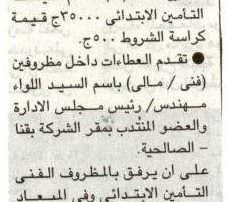 التأمين الابتدائى ٣٥٠٠٠ج قيمة
كراسة الشروط ٥٠٠ج.
● تقدم العطاءات داخل مظروفين
(فنى / مالى) باسم السيد اللواء
مهندس/ رئيس مجلس الادارة
والعضو المنتدب بمقر الشركة بقنا
– الصالحية.
على ان يرفق بالمظروف الفنى
التأمين الابتدائى وفى الميعاد